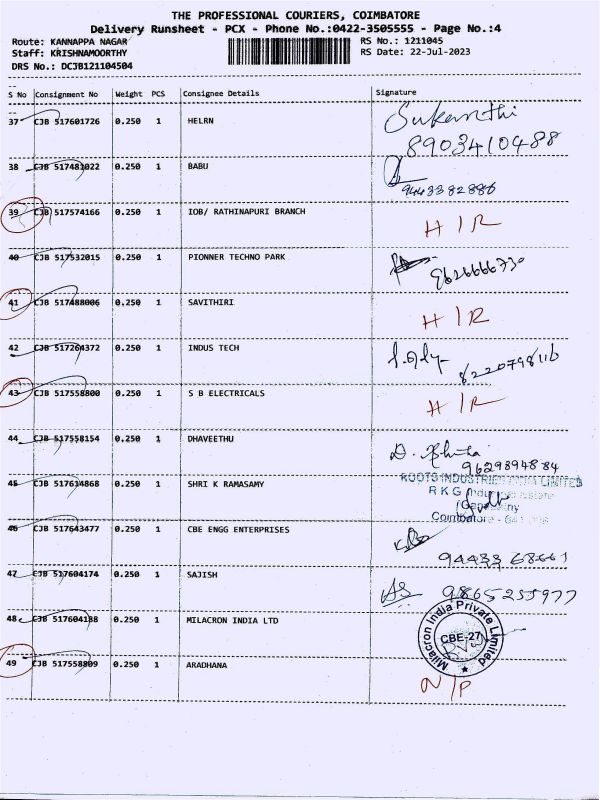 THE PROFESSIONAL COURIERS, COIMBATORE
Delivery Runsheet - PCX - Phone No.:0422-3505555 - Page No.:4
Route: KANNAPPA NAGAR RS No.: 1211045
Staff: KRISHNAMOORTHY RS Date: 22-Jul-2023
DRS No.: DCJB121104504
S No Consignment No Weight PCS Consignee Details Signature
37 CJB 517601726 0.250 1 HELRN
8903410488
38 CJB 517481022 0.250 1 BABU
9443382886
39 CJB 517574166 0.250 1 IOB/ RATHINAPURI BRANCH
H I R
40 CJB 517532015 0.250 1 PIONNER TECHNO PARK
9626666730
41 CJB 517488006 0.250 1 SAVITHIRI
H I R
42 CJB 517264372 0.250 1 INDUS TECH
43 CJB 517558800 0.250 1 S B ELECTRICALS
H I R
44 CJB 517558154 0.250 1 DHAVEETHU
9629894884
45 CJB 517614868 0.250 1 SHRI K RAMASAMY
ROOTS INDUSTRIES LIMITED
R K G
Coimbatore - 641
46 CJB 517643477 0.250 1 CBE ENGG ENTERPRISES
94433 68661
47 CJB 517604174 0.250 1 SAJISH
9865255977
48 CJB 517604188 0.250 1 MILACRON INDIA LTD
Milacron India Private Limited
CBE-27
49 CJB 517558809 0.250 1 ARADHANA
N/P